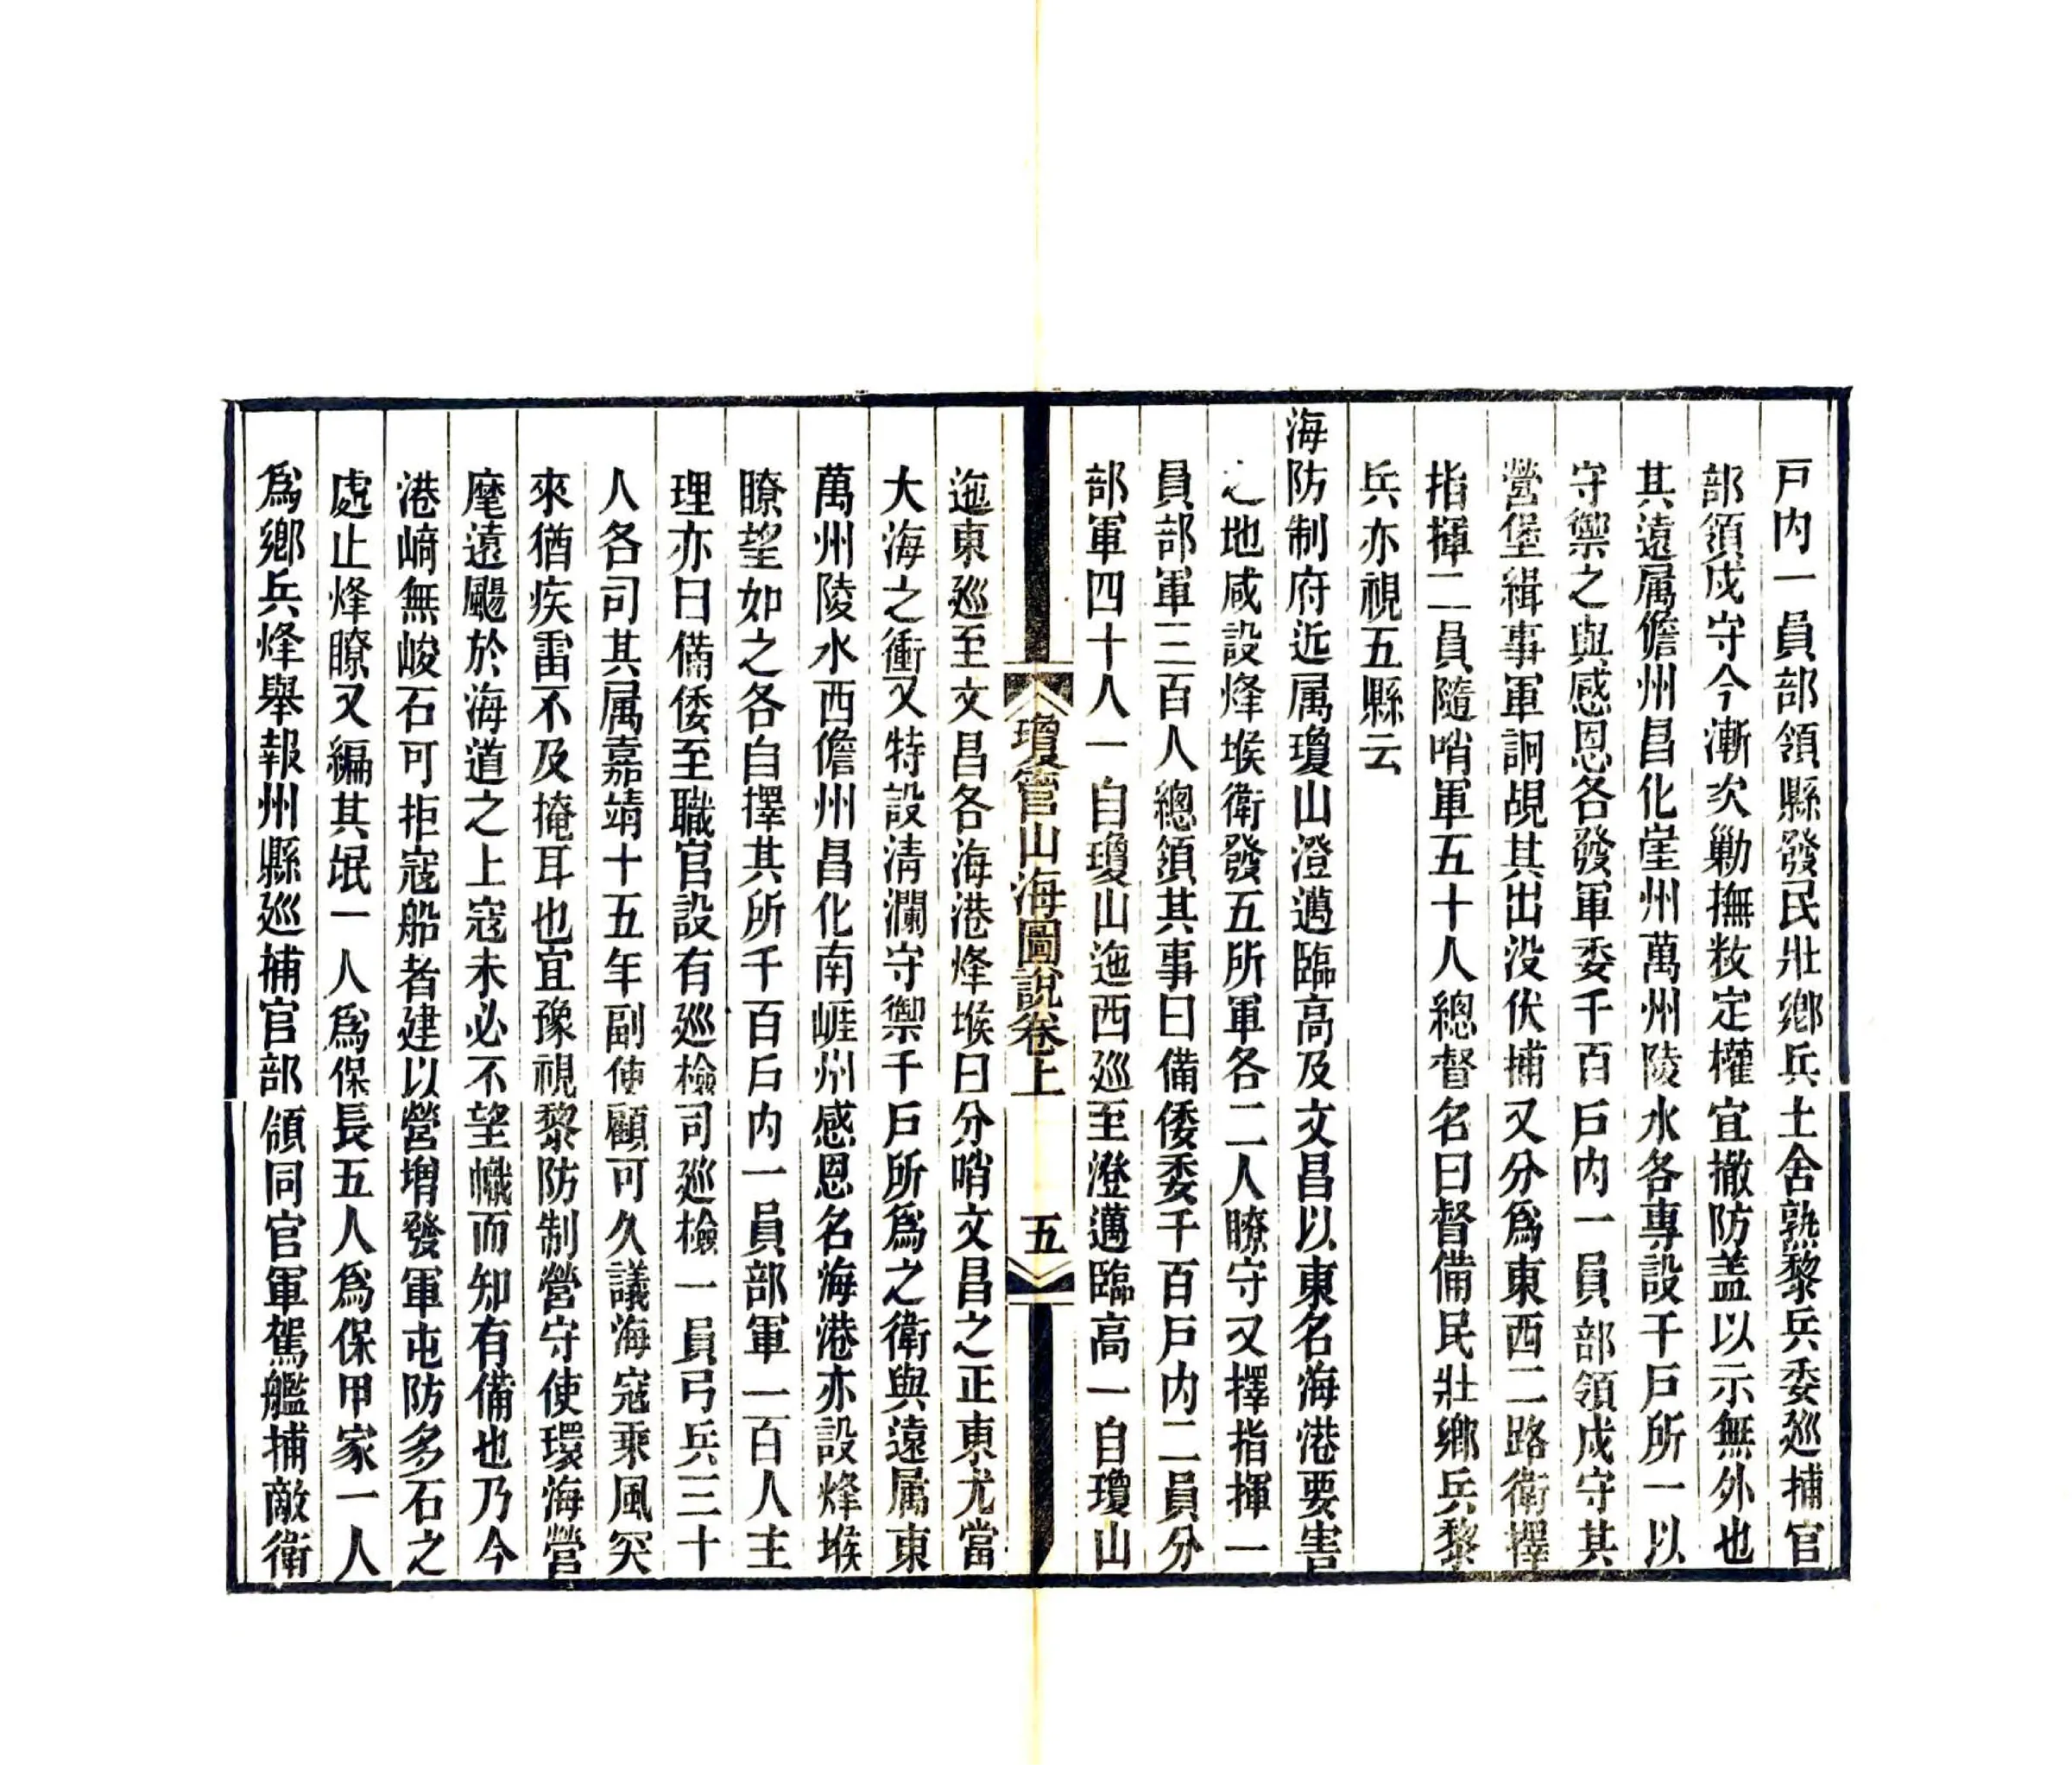 戸内一員部領縣發民壯鄉兵土舍熟黎兵委廵捕官
部領戍守今漸次勦撫敉定權宜撤防盖以示無外也
其遠属儋州昌化崖州萬州陵水各專設千戸所一以
守禦之與感恩各發軍委千百戸内一員部領戍守其
營堡緝事軍詗覘其出没伏捕又分爲東西二路衛擇
指揮二員隨哨軍五十人總督名曰督備民壯鄉兵黎
兵亦視五縣云
海防制府近属瓊山澄邁臨高及文昌以東名海港要害
之地咸設烽堠衛發五所軍各二人瞭守又擇指揮一
員部軍三百人總領其事曰備倭委千百戸内二員分
部軍四十人一自瓊山迤西廵至澄邁臨高一自瓊山
瓊管山海圖說卷上
五
迤東廵至文昌各海港烽堠曰分哨文昌之正東尤當
大海之衝又特設清瀾守禦千戸所爲之衛與遠属東
萬州陵水西儋州昌化南崕州感恩名海港亦設烽堠
瞭望如之各自擇其所千百戸内一員部軍一百人主
理亦曰備倭至職官設有廵檢司廵檢一員弓兵三十
人各司其属嘉靖十五年副使顧可久議海寇乘風突
來猶疾雷不及掩耳也宜豫視黎防制營守使環海營
麾遠颺於海道之上寇未必不望幟而知有備也乃今
港﨑無峻石可拒寇船者建以營増發軍屯防多石之
處止烽瞭又編其氓一人爲保長五人爲保甲家一人
爲鄉兵烽舉報州縣廵捕官部領同官軍駕艦捕敵衛